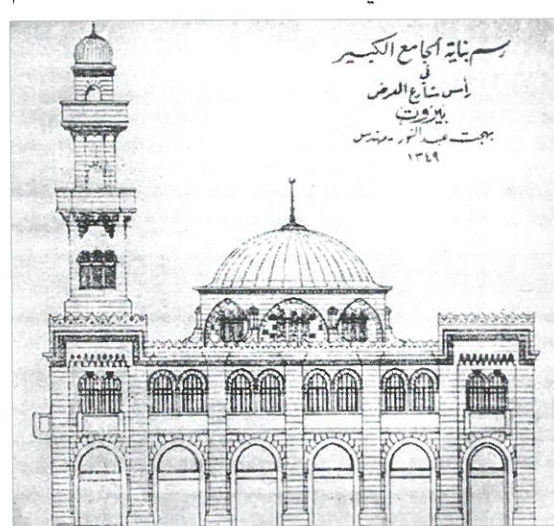 رسم بناية الجامع الكبير
في
رأس شارع المعرض
بيروت
بهجت عبد النور - مهندس
١٣٤٩